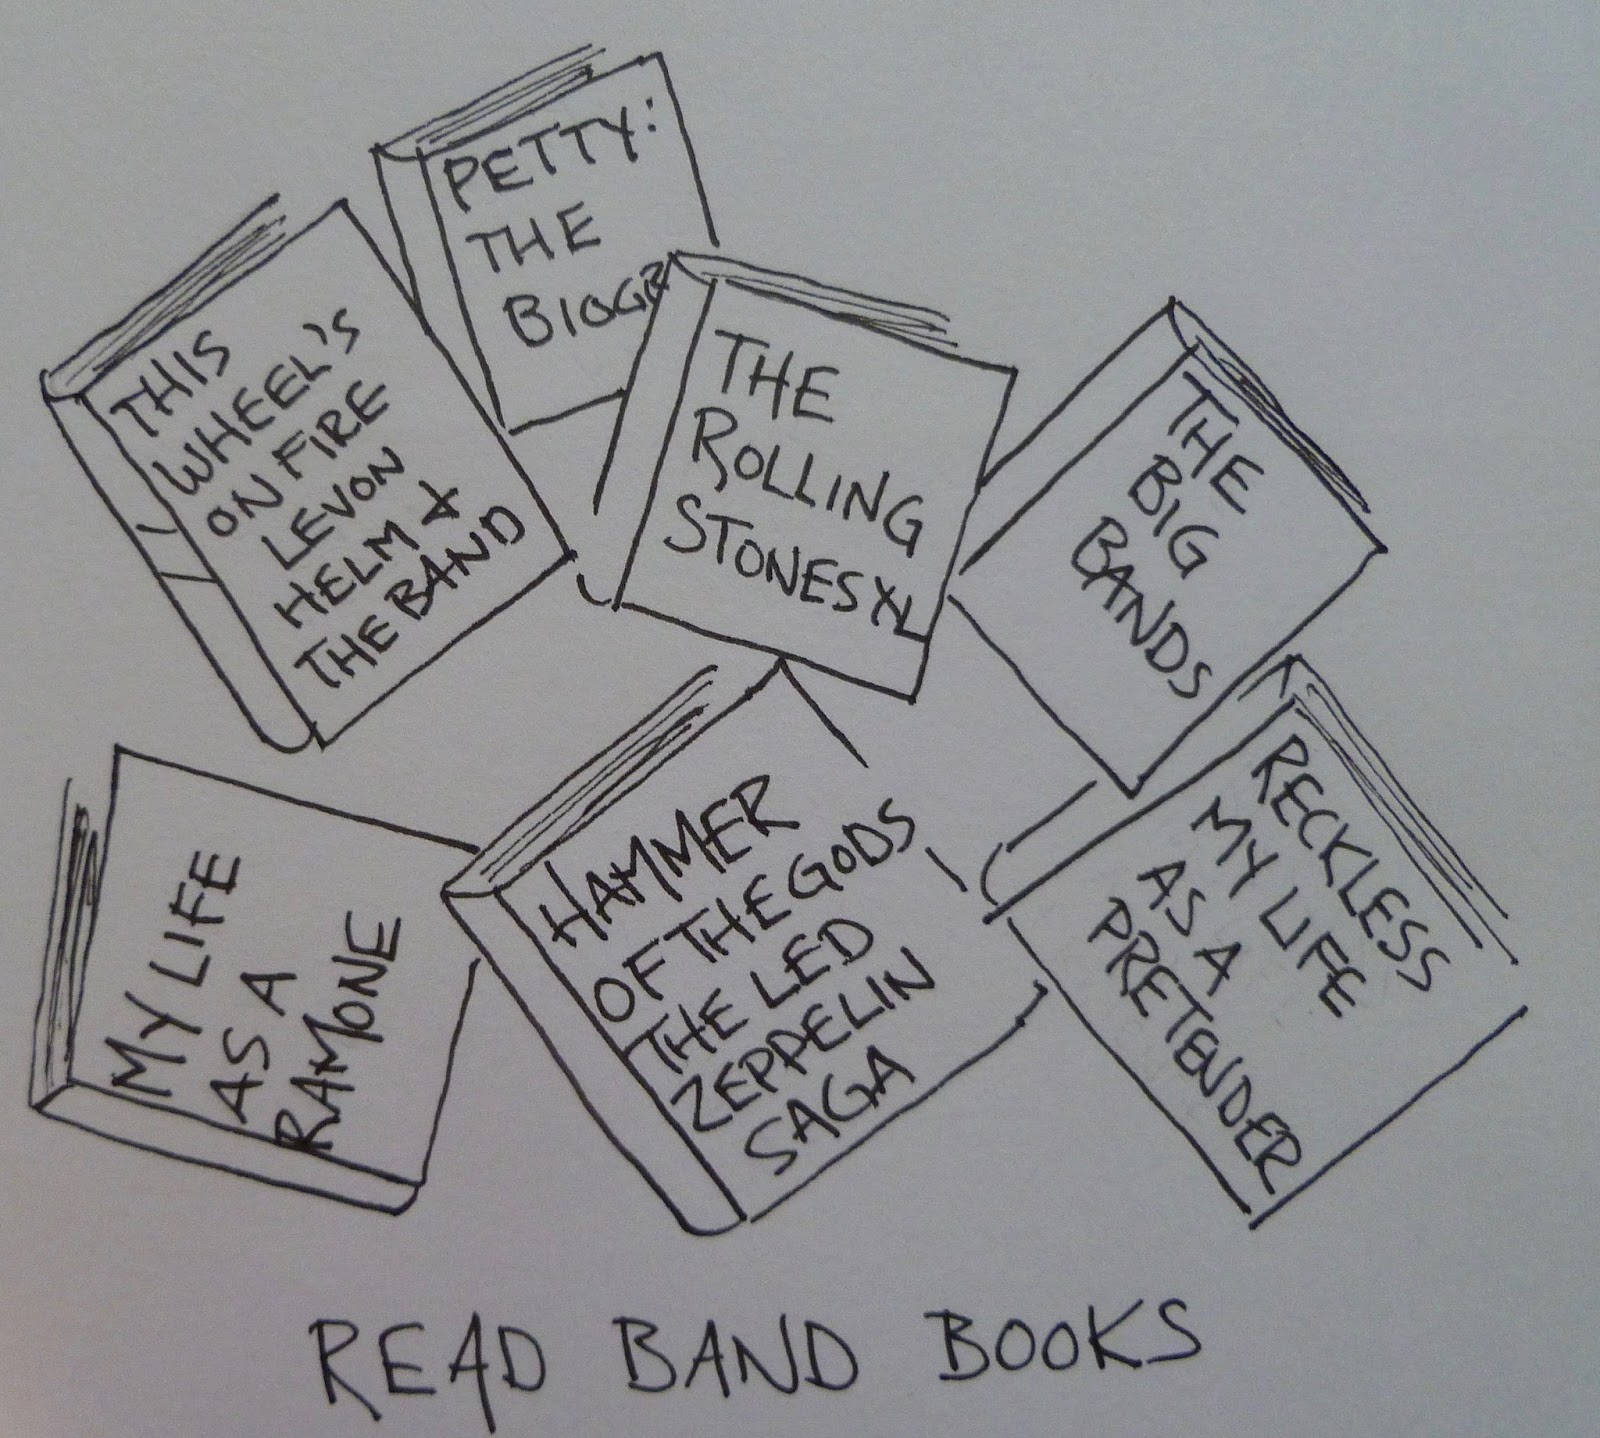 PETTY:
THE
BIOGR
THIS
WHEEL'S
ON FIRE
LEVON
HELM &
THE BAND
THE
ROLLING
STONES XL
THE
BIG
BANDS
MY LIFE
AS A
RAMONE
HAMMER
OF THE GODS
THE LED
ZEPPELIN
SAGA
RECKLESS
MY LIFE
AS A
PRETENDER
READ BAND BOOKS